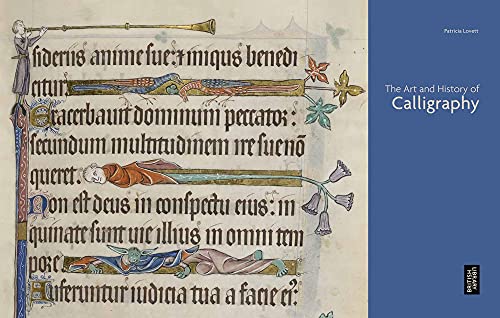 sideriis anime sue: ⁊ iniqus benedi
citur
Exacerbauit dominum peccator:
secundum multitudinem ire sue nō
queret.
Non est deus in conspectu eius: in
quinate sunt uie illius in omni tem
pore
Auferuntur iudicia tua a facie eiꝰ:
Patricia Lovett
The Art and History of
Calligraphy
BRITISH
LIBRARY